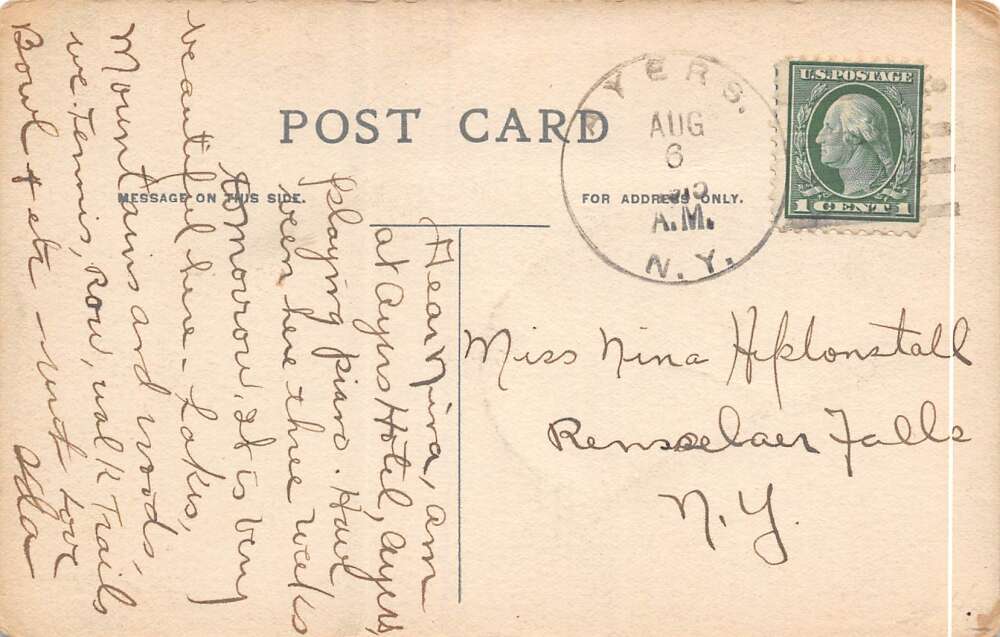 POST CARD
MESSAGE ON THIS SIDE.
FOR ADDRESS ONLY.
AYERS.
AUG
6
A.M.
N.Y.
U.S. POSTAGE
1 CENT 1
Dear Nina, am
at Ayers Hotel, Ayers,
playing piano. Have
been here three weeks
tomorrow. It is very
beautiful here - Lakes,
Mountains and woods,
we Tennis, Row, walk Trails
Bowl + etc - much love
Ida
Miss Nina Heptonstall
Rensselaer Falls
N.Y.